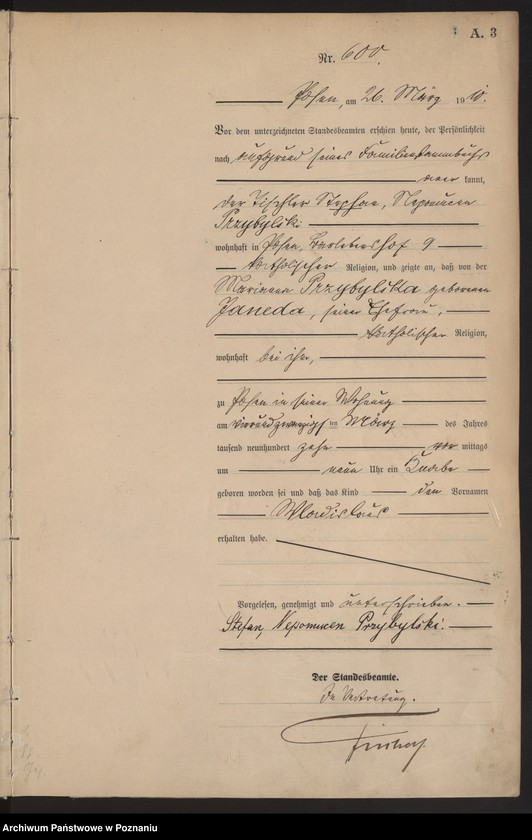 A. 3
Nr. 600.
Posen, am 26. März 1910.
Vor dem unterzeichneten Standesbeamten erschien heute, der Persönlichkeit
nach auf Grund seines Familienstammbuchs
kannt,
der Tischler Stephan, Nepomucen
Przybylski
wohnhaft in Posen, 9
katholischer Religion, und zeigte an, daß von der
Marianna Przybylska geborenen
Janeda, seiner Ehefrau,
katholischer Religion,
wohnhaft bei ihm,
zu Posen in seiner Wohnung
am vierundzwanzigsten März des Jahres
tausend neunhundert zehn vor mittags
um neun Uhr ein Knabe
geboren worden sei und daß das Kind den Vornamen
Wladislaus
erhalten habe.
Vorgelesen, genehmigt und unterschrieben.
Stefan, Nepomucen Przybylski.
Der Standesbeamte.
In Vertretung.
Archiwum Państwowe w Poznaniu